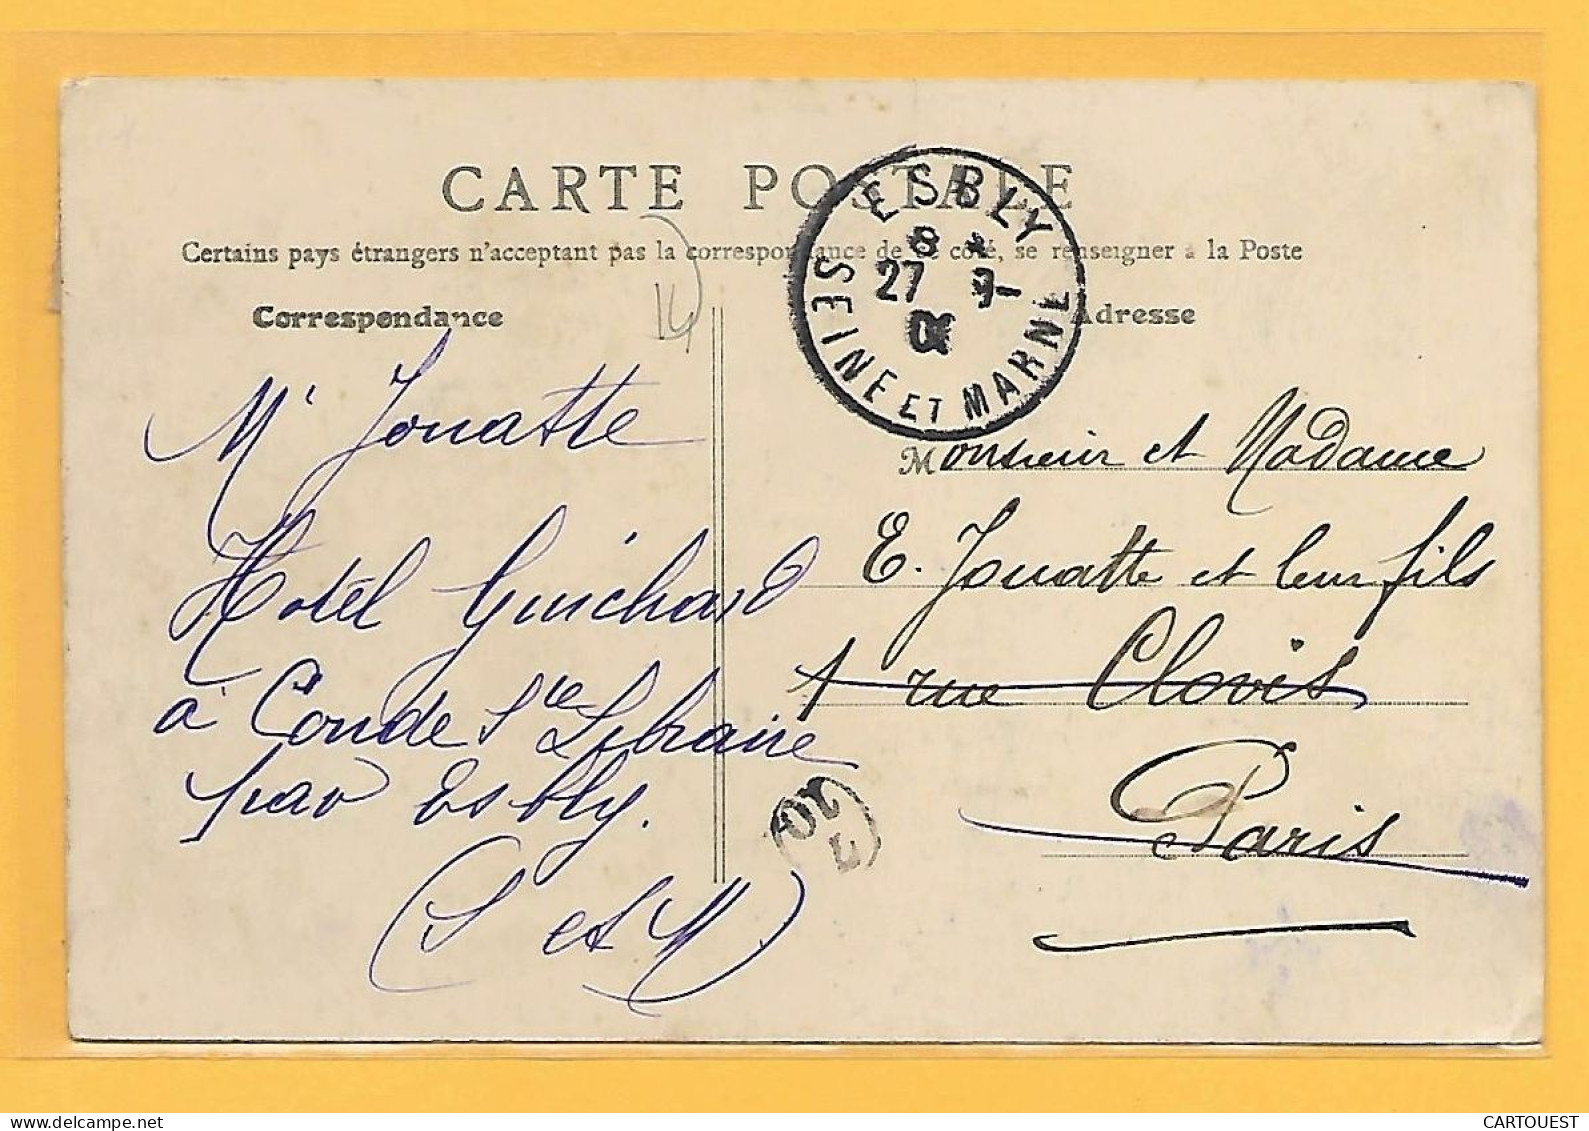 CARTE POSTALE
Certains pays étrangers n'acceptent pas la correspondance de ce côté, se renseigner à la Poste
Correspondance
Adresse
ESBLY
8 *
27 9
SEINE ET MARNE
14
Mr Jouatte
Hotél Guichard
à Conde Ste Libraire
par Esbly.
(S et M)
Monsieur et Madame
E. Jouatte et leur fils
1 rue Clovis
Paris
10
CARTOUEST